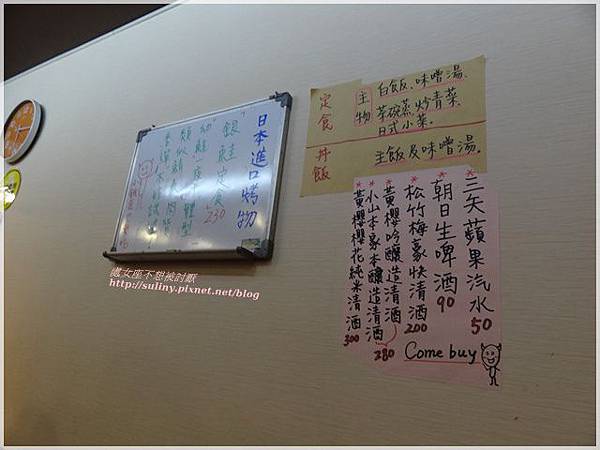 日本進口烤物
「銀鮭」定食 230
定食
主物
白飯、味噌湯、
茶碗蒸、炒青菜、
日式小菜。
丼飯
主飯及味噌湯。
*三矢蘋果汽水 50
*朝日生啤酒 90
*松竹梅豪快清酒 200
*黃櫻吟釀造清酒
*小山本家本釀造清酒 280
*黃櫻櫻花純米清酒 300
Come buy
處女座不想被討厭
http://suliny.pixnet.net/blog